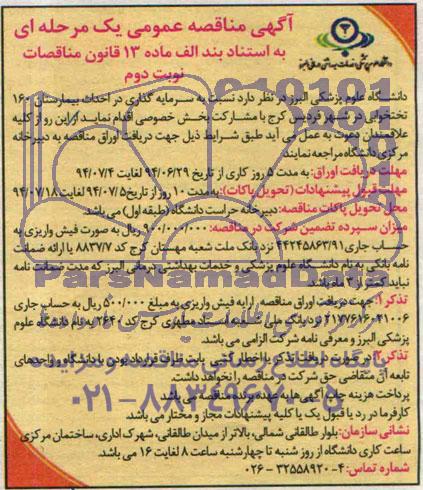 آگهی مناقصه عمومی یک مرحله ای
به استناد بند الف ماده ۱۳ قانون مناقصات
نوبت دوم
دانشگاه علوم پزشکی البرز در نظر دارد نسبت به سرمایه گذاری در احداث بیمارستان ۱۶۰
تختخوابی در شهر فردیس کرج با مشارکت بخش خصوصی اقدام نماید. از این رو از کلیه
علاقمندان دعوت به عمل می آید طبق شرایط ذیل جهت دریافت اوراق مناقصه به دبیرخانه
مرکزی دانشگاه مراجعه نمایند.
مهلت دریافت اوراق: به مدت ۵ روز کاری از تاریخ ۹۴/۰۶/۲۹ لغایت ۹۴/۰۷/۴
مهلت قبول پیشنهادات (تحویل پاکات): به مدت ۱۰ روز از تاریخ ۹۴/۰۷/۵ لغایت ۹۴/۰۷/۱۸
محل تحویل پاکات مناقصه: دبیرخانه حراست دانشگاه (طبقه اول) می باشد.
میزان سپرده تضمین شرکت در مناقصه: ۹۰۰/۰۰۰/۰۰۰ ریال به صورت فیش واریزی به
حساب جاری ۴۴۲۴۵۸۶۳/۹۱ نزد بانک ملت شعبه مهستان کرج کد ۸۸۳۷/۷ یا ارائه ضمانت
نامه بانکی به نام دانشگاه علوم پزشکی و خدمات بهداشتی درمانی البرز که مدت ضمانت نامه
نباید کمتر از ۳ ماه باشد.
تذکر ۱: جهت دریافت اوراق مناقصه، ارایه فیش واریزی به مبلغ ۵۰۰/۰۰۰ ریال به حساب جاری
۲۱۷۷۶۱۶۰۴۱۰۰۶ نزد بانک ملی شعبه استاد مطهری کرج کد ۲۶۴۰ به نام دانشگاه علوم
پزشکی البرز و معرفی نامه شرکت الزامی می باشد.
تذکر ۲: در صورت دریافت تذکر یا اخطار کتبی بابت طرف قرارداد بودن با دانشگاه و واحدهای
تابعه آن متقاضی حق شرکت در مناقصه را نخواهد داشت.
پرداخت هزینه چاپ آگهی ها به عهده برنده مناقصه می باشد.
کارفرما در رد یا قبول یک یا کلیه پیشنهادات مجاز و مختار می باشد.
نشانی سازمان: بلوار طالقانی شمالی، بالاتر از میدان طالقانی، شهرک اداری، ساختمان مرکزی
ساعت کاری دانشگاه از روز شنبه تا چهارشنبه ساعت ۸ لغایت ۱۶ می باشد.
شماره تماس: ۴-۳۲۵۵۸۹۲۰-۰۲۶
ParsNamadData
۰۲۱-۸۸۳۴۹۶۷۰-۵